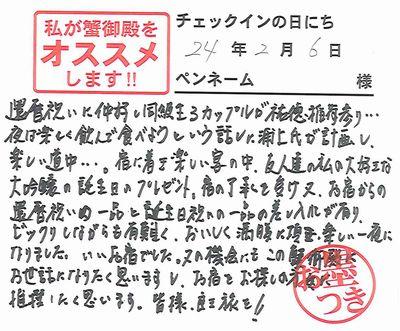 私が蟹御殿を
オススメ
します!!
チェックインの日にち
24 年 2 月 6 日
ペンネーム 様
還暦祝いに仲好し同級生3カップルが祐徳稲荷参り…
夜は楽しく飲んで食べようという話しに浦上氏が計画し、
楽しい道中…。宿に着き楽しい宴の中、友人達の私の大好きな
大吟醸の誕生日のプレゼント。宿の了承を受け又、お宿からの
還暦祝いの一品と誕生日祝の一品の差し入れが有り、
ビックリしながらも有難く、おいしく満腹に頂き楽しい一夜に
なりました。いいお宿でした。又の機会にもこの蟹御殿に
お世話になりたく思いますし、お宿をお探しの
推挙したく思います。皆様、良き旅を!
お墨つき